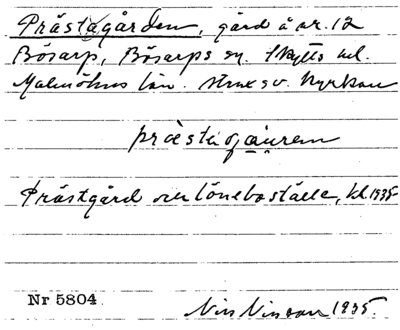 Prästagården, gård å nr. 12
Bösarp, Bösarps sn. Skytts hd.
Malmöhus län. strax s.v. kyrkan
præstagá̱u̱ren
Prästgård och löneboställe, bl. 1935
Nr 5804
Nils Nilsson 1935.